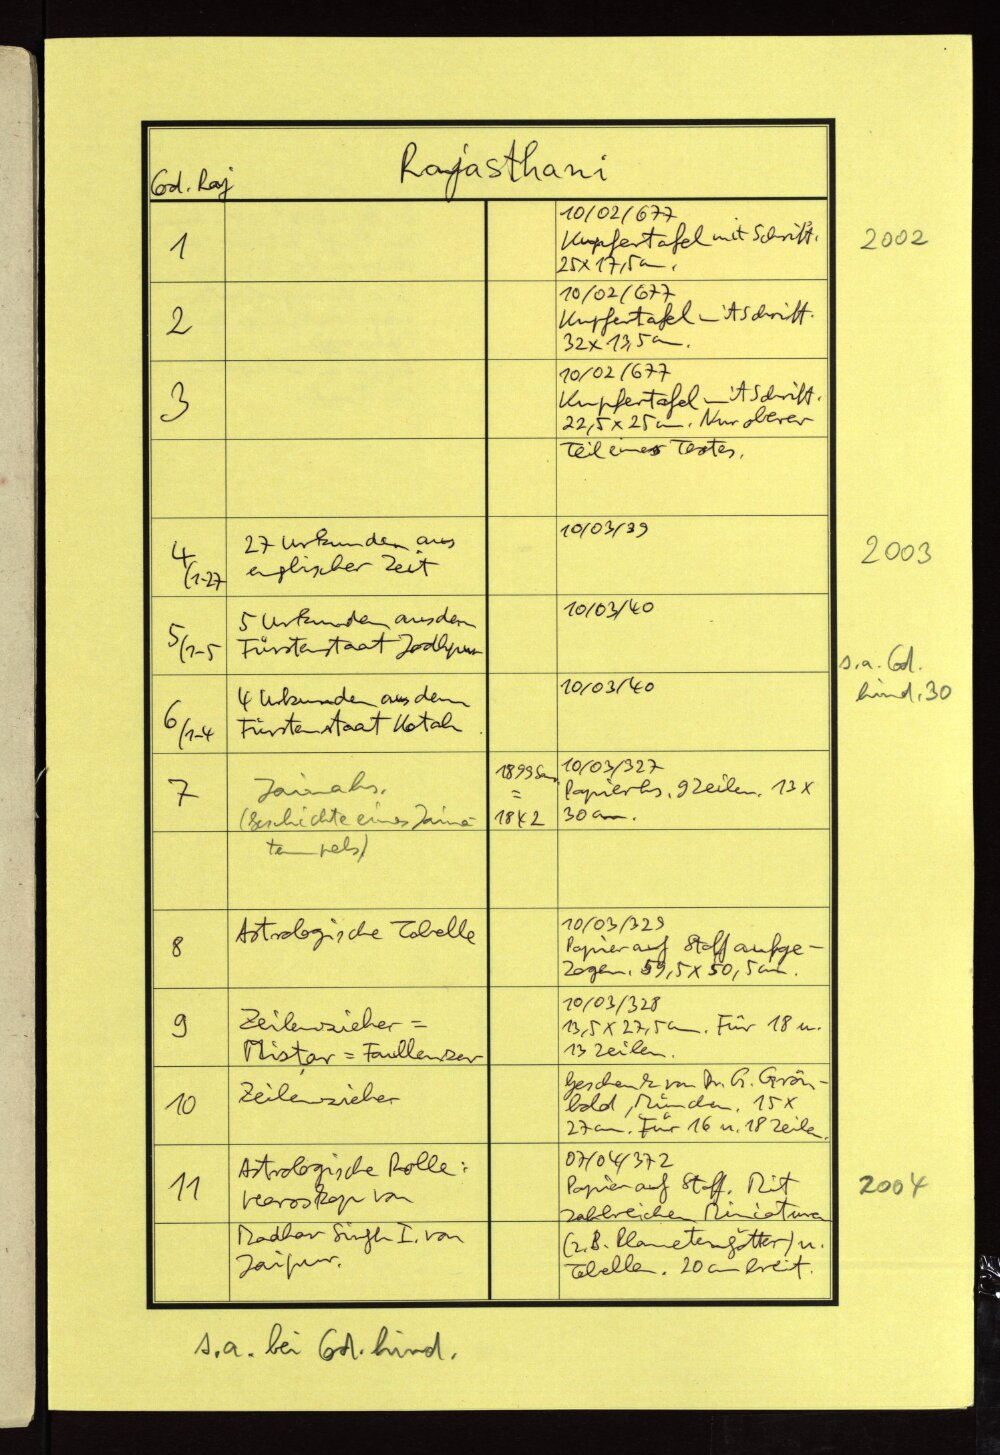 Rajasthani
Cod. Raj
1
10/02/677
Kupfertafel mit Schrift.
25x17,5cm.
2002
2
10/02/677
Kupfertafel mit Schrift.
32x13,5cm.
3
10/02/677
Kupfertafel mit Schrift.
22,5x25cm. Nur oberer
Teil eines Textes.
4
/1-27
27 Urkunden aus
englischer Zeit
10/03/39
2003
5/1-5
5 Urkunden aus dem
Fürstenstaat Jodhpur
10/03/40
s.a. Cod.
hind. 30
6/1-4
4 Urkunden aus dem
Fürstenstaat Kotah
10/03/40
7
Jainahs.
(Geschichte eines Jaina-
tempels)
1899 Sam
=
1842
10/03/327
Papierhs. 9 Zeilen. 13x
30cm.
8
Astrologische Tabelle
10/03/329
Papier auf Stoff aufge-
zogen. 59,5x50,5cm.
9
Zeilenzieher =
Misṭar = Faullenzer
10/03/328
13,5x27,5cm. Für 18 u.
13 Zeilen.
10
Zeilenzieher
Geschenk von Dr. G. Grön-
bold, München. 15x
27cm. Für 16 u. 18 Zeilen.
11
Astrologische Rolle:
Horoskop von
Madhav Singh I. von
Jaipur.
07/04/372
Papier auf Stoff. Mit
zahlreichen Miniaturen
(z.B. Planetengötter) u.
Tabellen. 20cm breit.
2004
s.a. bei Cod. hind.